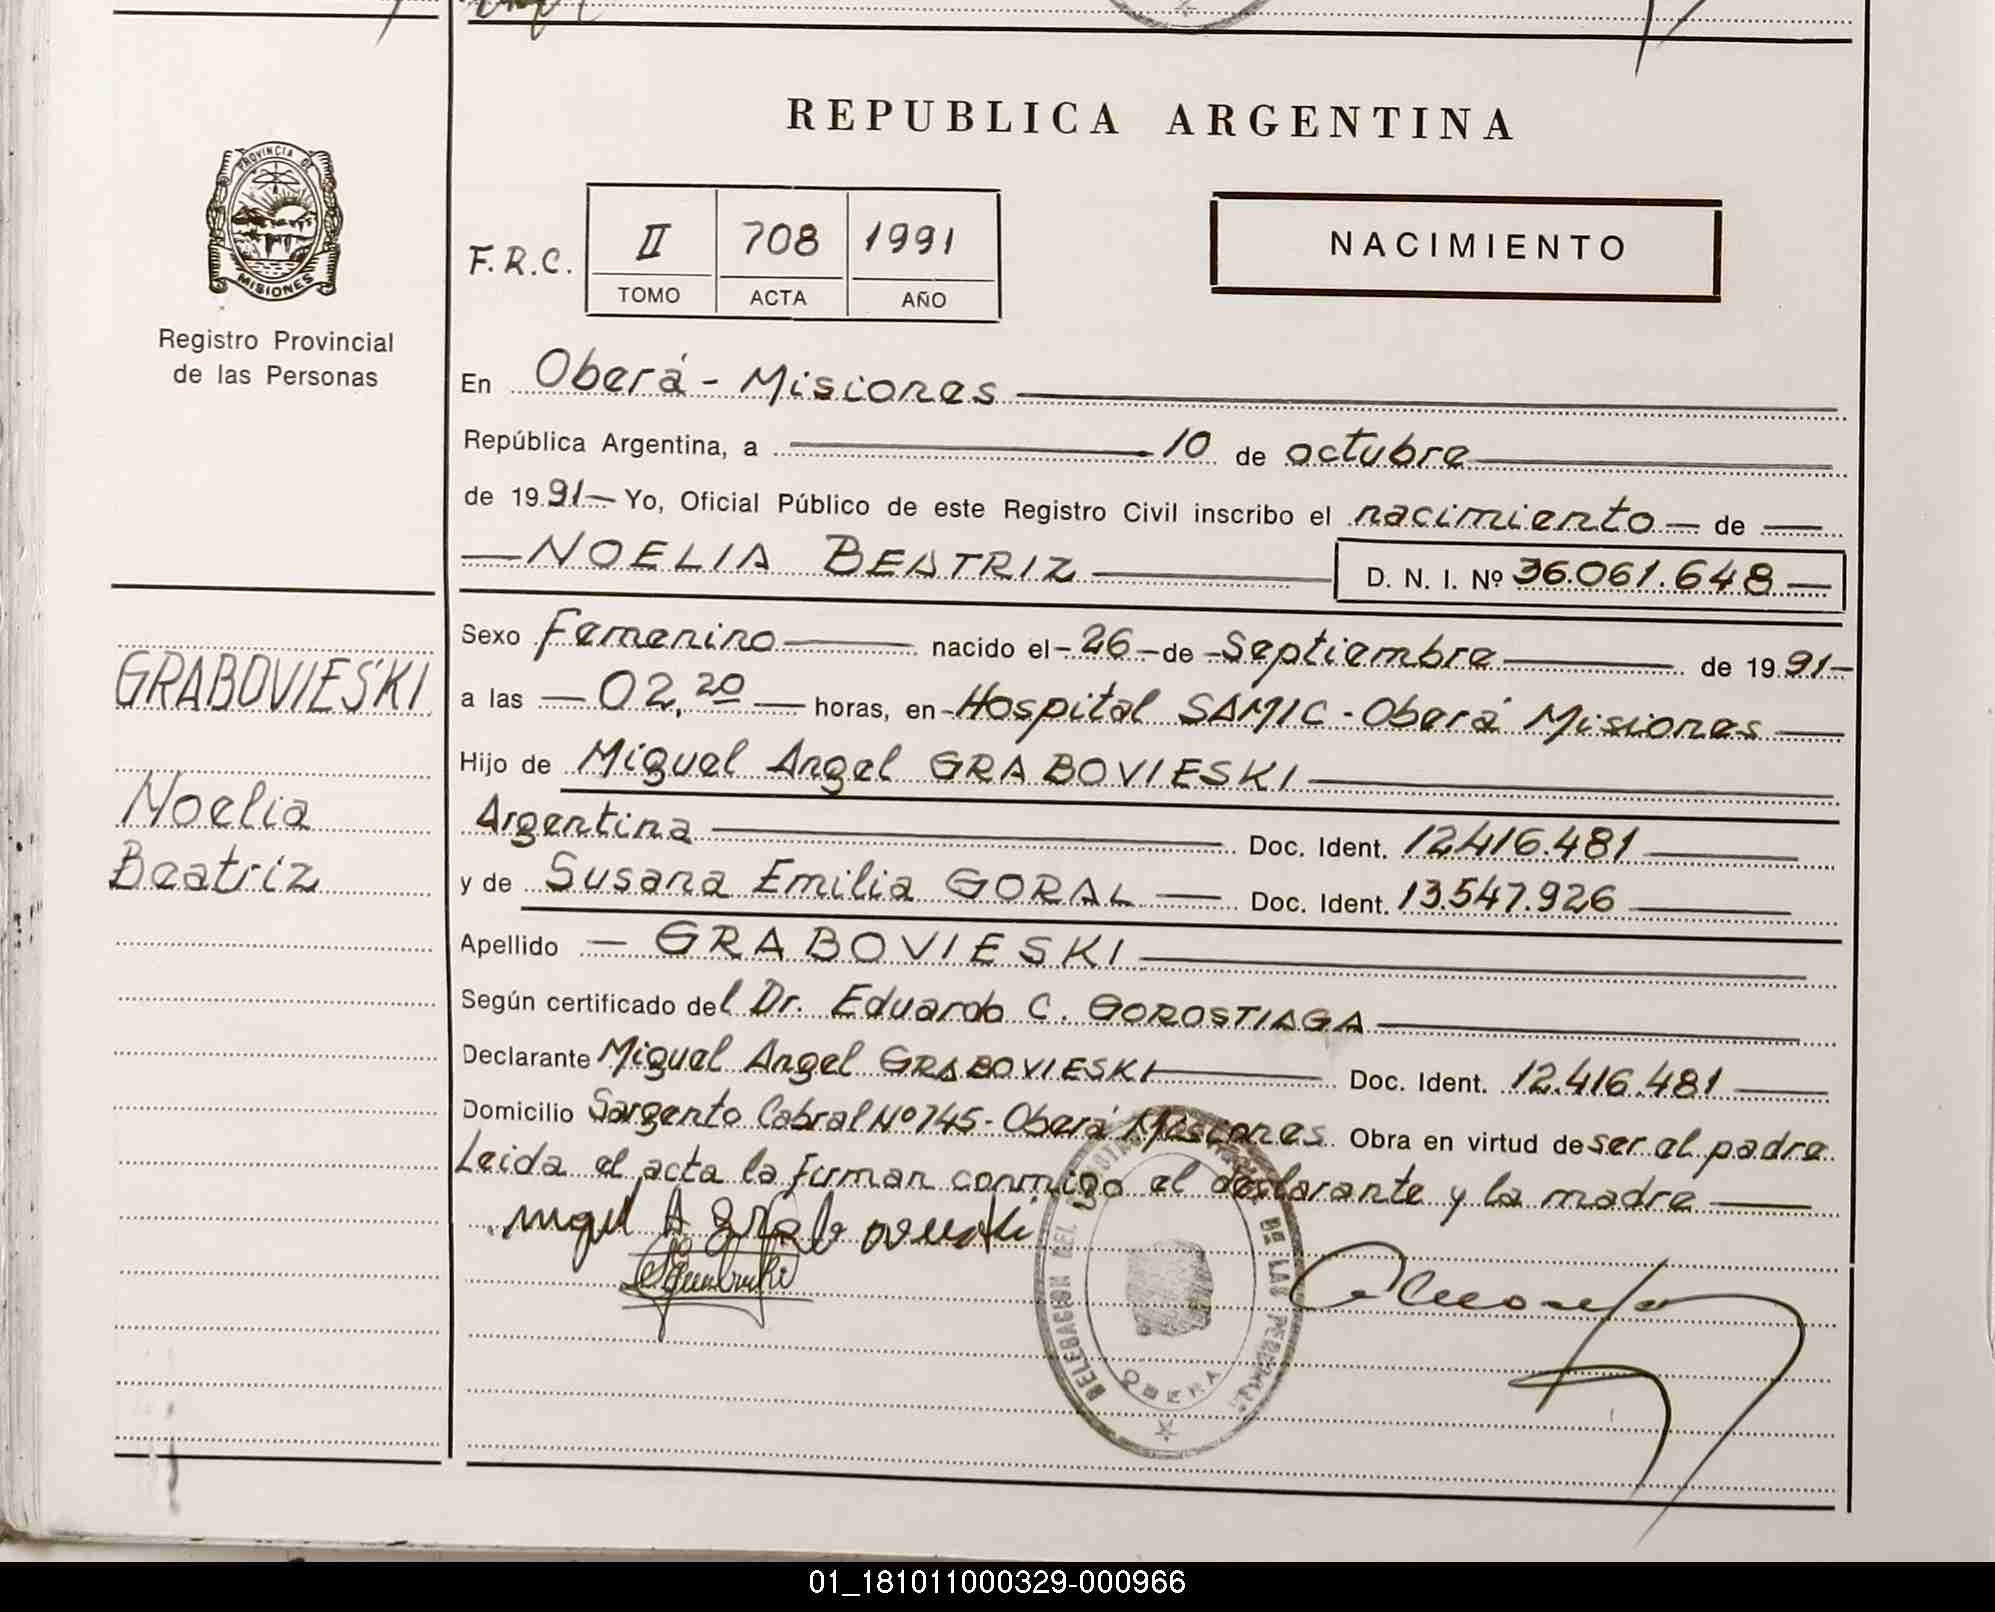 REPUBLICA ARGENTINA
PROVINCIA DE
MISIONES
Registro Provincial
de las Personas
F.R.C. II 708 1991
TOMO ACTA AÑO
NACIMIENTO
En Oberá - Misiones
República Argentina, a 10 de octubre
de 1991 Yo, Oficial Público de este Registro Civil inscribo el nacimiento de
NOELIA BEATRIZ D. N. I. Nº 36.061.648
Sexo Femenino nacido el 26 de Septiembre de 1991
a las 02,20 horas, en Hospital SAMIC - Oberá Misiones
Hijo de Miguel Angel GRABOVIESKI
Argentina Doc. Ident. 12.416.481
y de Susana Emilia GORAL Doc. Ident. 13.547.926
Apellido GRABOVIESKI
Según certificado del Dr. Eduardo C. GOROSTIAGA
Declarante Miguel Angel GRABOVIESKI Doc. Ident. 12.416.481
Domicilio Sargento Cabral Nº 745 - Oberá Misiones Obra en virtud de ser el padre
Leida el acta la firman conmigo el declarante y la madre
GRABOVIESKI
Noelia
Beatriz
DELEGACION DEL DE LAS PERSONAS
OBERA
01_181011000329-000966